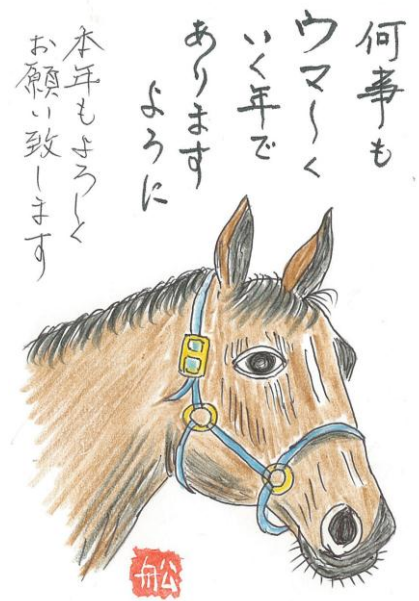 何事も
ウマ〜く
いく年で
あります
ように
本年もよろしく
お願い致します